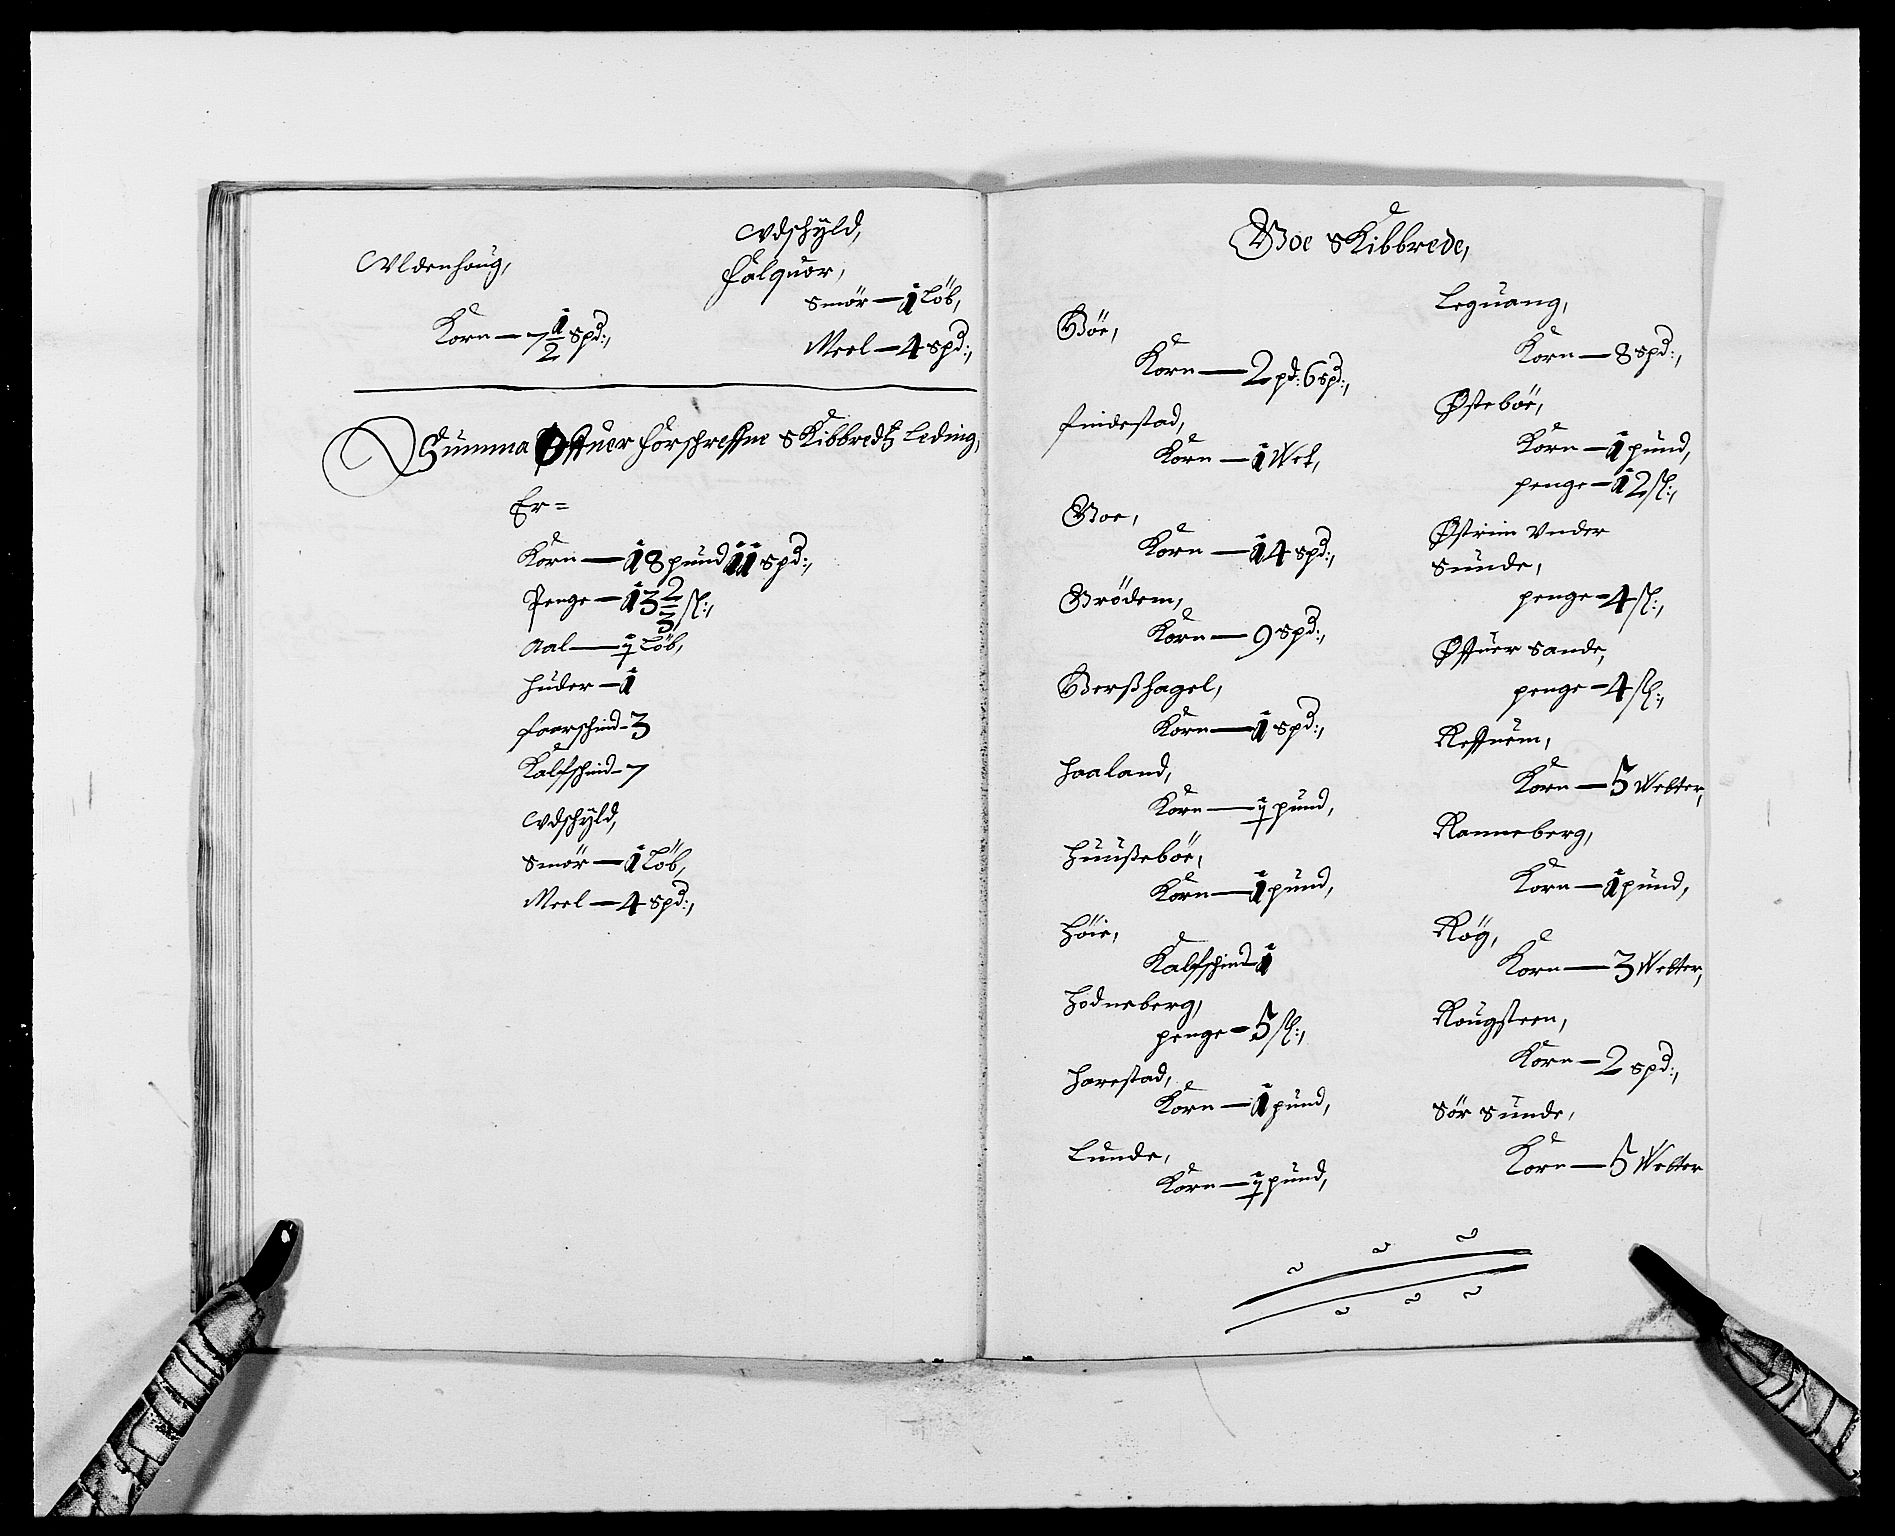 Vldenhoug,
Korn — 7 1/2 spd:,
Vdschyld,
Falquor,
Smör — 1 Löb,
Meel — 4 spd:,
Summa Offuer forschreffne Skibbredtz Leding,
Er =
Korn — 18 pund 11 spd:,
Penge — 13 2/3 sl:,
Aal — ½ Löb,
Huder — 1
Faarschind — 3
Kalfschind — 7
Vdschyld,
Smör — 1 Löb,
Meel — 4 spd:,
Boe Skibbrede,
Böe,
Korn — 2 pd: 6 spd:,
Findestad,
Korn — 1 Wet,
Boe,
Korn — 14 spd:,
Brödem,
Korn — 9 spd:,
Berßhagel,
Korn — 1 spd:,
Haaland,
Korn — ½ pund,
Huußeböe,
Korn — 1 pund,
Höie,
Kalfschind — 1
Hodneberg,
penge — 5 sl:,
Harestad,
Korn — 1 pund,
Lunde,
Korn — ½ pund,
Leguang,
Korn — 8 spd:,
Østeböe,
Korn — 1 pund,
penge — 12 sl:,
Østrim Vnder
Sunde,
penge — 4 sl:,
Øffuer Sande,
penge — 4 sl:,
Reffuem,
Korn — 5 Wetter,
Ranneberg,
Korn — 1 pund,
Röy,
Korn — 3 Wetter,
Rougsteen,
Korn — 2 spd:,
Sör Sunde,
Korn — 5 Wetter